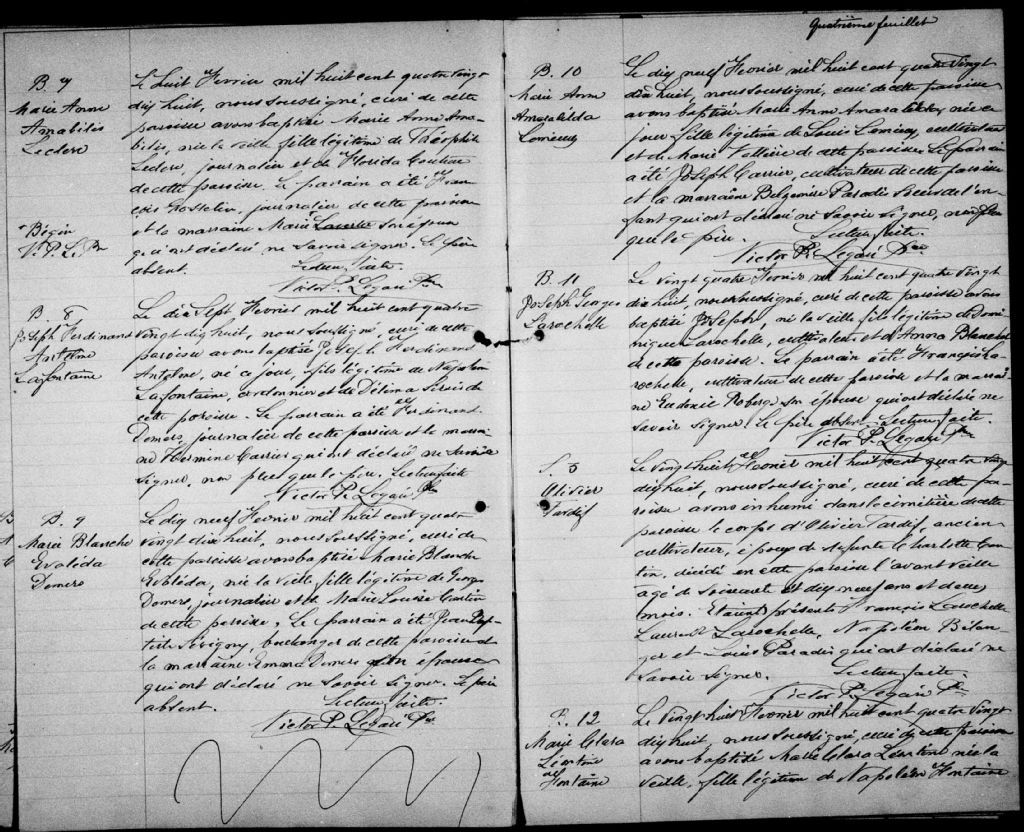 Quatrième feuillet
B. 7
Marie Anne
Amabilis
Leclerc
Le huit Fevrier mil huit cent quatre vingt
dix huit, nous soussigné, curé de cette
paroisse avons baptisé Marie Anne Ama-
bilis, née la veille fille légitime de Théophile
Leclerc, journalier et de Florida Couture
de cette paroisse. Le parrain a été Fran-
çois Gosselin, journalier de cette paroisse
et la marraine Marie
qui ont déclaré ne savoir signer. Le père
absent. Lecture faite.
Victor P. Legaré Ptre
+ Bégin
V. P. L. Ptre
B. 8
Joseph Ferdinand
Antelme
Lafontaine
Le dix Sept Fevrier mil huit cent quatre
vingt dix huit, nous soussigné, curé de cette
paroisse avons baptisé Joseph Ferdinand
Antelme, né ce jour, fils légitime de Napoléon
Lafontaine, cordonnier et de Délima
cette paroisse. Le parrain a été Ferdinand
Demers, journalier de cette paroisse et la marrai-
ne Hermine Carrier qui ont déclaré ne savoir
signer, non plus que le père. Lecture faite
Victor P. Legaré Ptre
B. 9
Marie Blanche
Evaléda
Demers
Le dix neuf Fevrier mil huit cent quatre
vingt dix huit, nous soussigné, curé de
cette paroisse avons baptisé Marie Blanche
Evaléda, née la veille fille légitime de Georges
Demers, journalier et de Marie Louise Cantin
de cette paroisse. Le parrain a été Jean Bap-
tiste Sévigny, boulanger de cette paroisse et
la marraine Emma Demers son épouse
qui ont déclaré ne savoir signer. Le père
absent. Lecture faite.
Victor P. Legaré Ptre
B. 10
Marie Anne
Amarakilda
Lemieux
Le dix neuf Fevrier mil huit cent quatre vingt
dix huit, nous soussigné, curé de cette paroisse
avons baptisé Marie Anne Amarakilda, née ce
jour fille légitime de Louis Lemieux, cultivateur
et de Marie Vallière de cette paroisse. Le parrain
a été Joseph Carrier, cultivateur de cette paroisse
et la marraine Paradis de l'en-
fant qui ont déclaré ne savoir signer, non plus
que le père. Lecture faite.
Victor P. Legaré Ptre
B. 11
Joseph Georges
Larochelle
Le vingt quatre Fevrier mil huit cent quatre vingt
dix huit, nous soussigné, curé de cette paroisse avons
baptisé Joseph, né la veille fils légitime de Domi-
nique Larochelle, cultivateur et d'Anna Blanchet
de cette paroisse. Le parrain a été François La-
rochelle, cultivateur de cette paroisse et la marrai-
ne Eudoxie Roberge son épouse qui ont déclaré ne
savoir signer. Le père absent. Lecture faite.
Victor P. Legaré Ptre
S. 5
Olivier
Tardif
Le vingt huit Fevrier mil huit cent quatre vingt
dix huit, nous soussigné, curé de cette pa-
roisse avons inhumé dans le cimetière de cette
paroisse le corps d'Olivier Tardif, ancien
cultivateur, époux de défunte Charlotte Can-
tin, décédé en cette paroisse l'avant veille
âgé de soixante et dix neuf ans et deux
mois. Etaient présents François Larochelle
Laurent Larochelle, Napoléon Bélan-
ger et Louis Paradis qui ont déclaré ne
savoir signer. Lecture faite.
Victor P. Legaré Ptre
B. 12
Marie Clara
Léontine
Fontaine
Le vingt huit Fevrier mil huit cent quatre vingt
dix huit, nous soussigné, curé de cette paroisse
avons baptisé Marie Clara Léontine née la
veille, fille légitime de Napoléon Fontaine